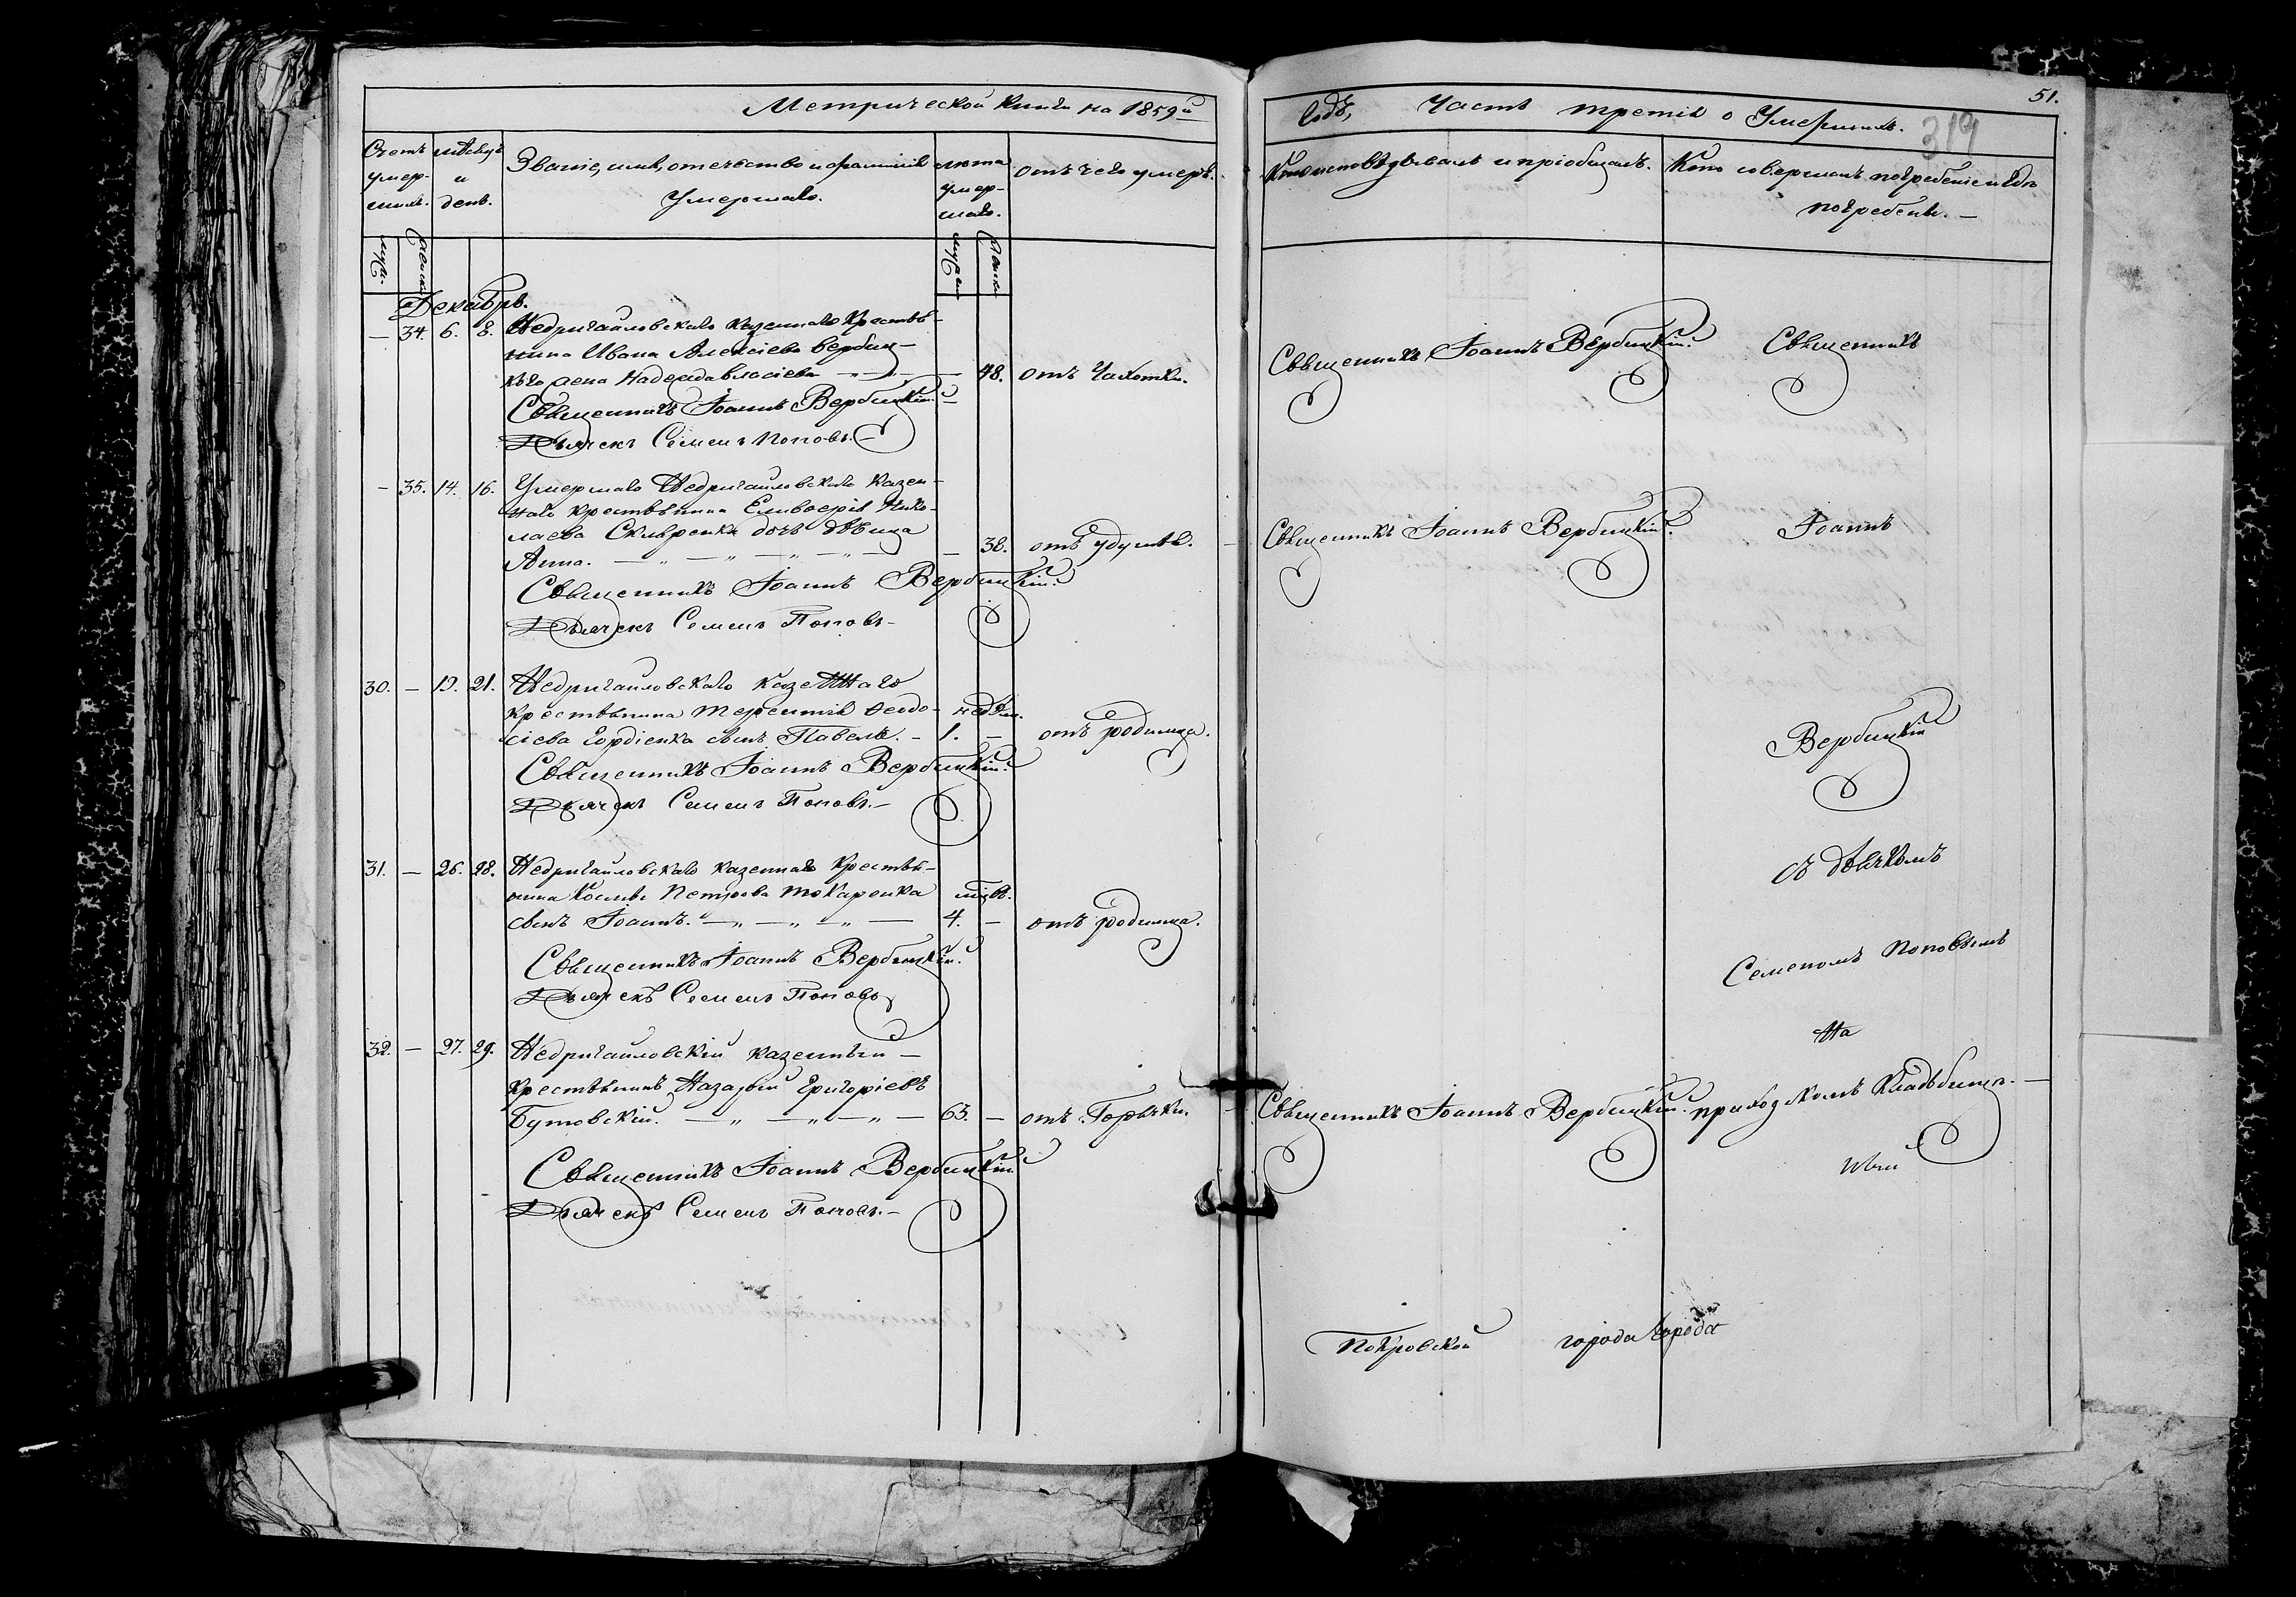 Метрической книги на 1859й
Счетъ умершихъ.
мѣсяцъ и день.
Званіе, имя, отечество и фамилія
Умершаго.
лѣта умершаго.
отъ чего умеръ.
муж.
женск.
мужеск.
женск.
Декабрь.
— 34. 6. 8. Недригайловскаго казеннаго Крестья-
нина Ивана Алексіева Вербиц-
каго жена Надежда Власіева — 48. отъ Чахотки.
Священникъ Іоаннъ Вербицкій.
Дьячекъ Семенъ Поповъ.
— 35. 14. 16. Умершаго Недригайловскаго казен-
наго крестьянина Елевферія Нико-
лаева Скляренка дочь дѣвица
Анна. — 38. отъ удушья.
Священникъ Іоаннъ Вербицкій.
Дьячекъ Семенъ Поповъ
30. — 19. 21. Недригайловскаго казеннаго
крестьянина Терентія Ѳеодо- недѣл.
сіева Гордіенка сынъ Павелъ. — 1. — отъ родимца.
Священникъ Іоаннъ Вербицкій.
Дьячекъ Семенъ Поповъ.
31. — 26. 28. Недригайловскаго казеннаго Крестья-
нина Космы Петрова Токаренка мѣсяц.
сынъ Іоаннъ. — 4. — отъ родимца.
Священникъ Іоаннъ Вербицкій.
Дьячекъ Семенъ Поповъ
32. — 27. 29. Недригайловскій казенный
крестьянинъ Назарій Григоріевъ
Бутовскій. — 63. — отъ Горячки.
Священникъ Іоаннъ Вербицкій.
Дьячекъ Семенъ Поповъ.
51.
319
годъ, Часть третія о Умершихъ.
Кто исповѣдывалъ и пріобщалъ.
Кто совершалъ погребеніе и гдѣ
погребены.
Священникъ Іоаннъ Вербицкій.
Священникъ
Священникъ Іоаннъ Вербицкій.
Іоаннъ
Вербицкій
съ дьячкомъ
Семеномъ Поповымъ
На
Священникъ Іоаннъ Вербицкій.
приходскомъ Кладбищѣ.
Покровской города города